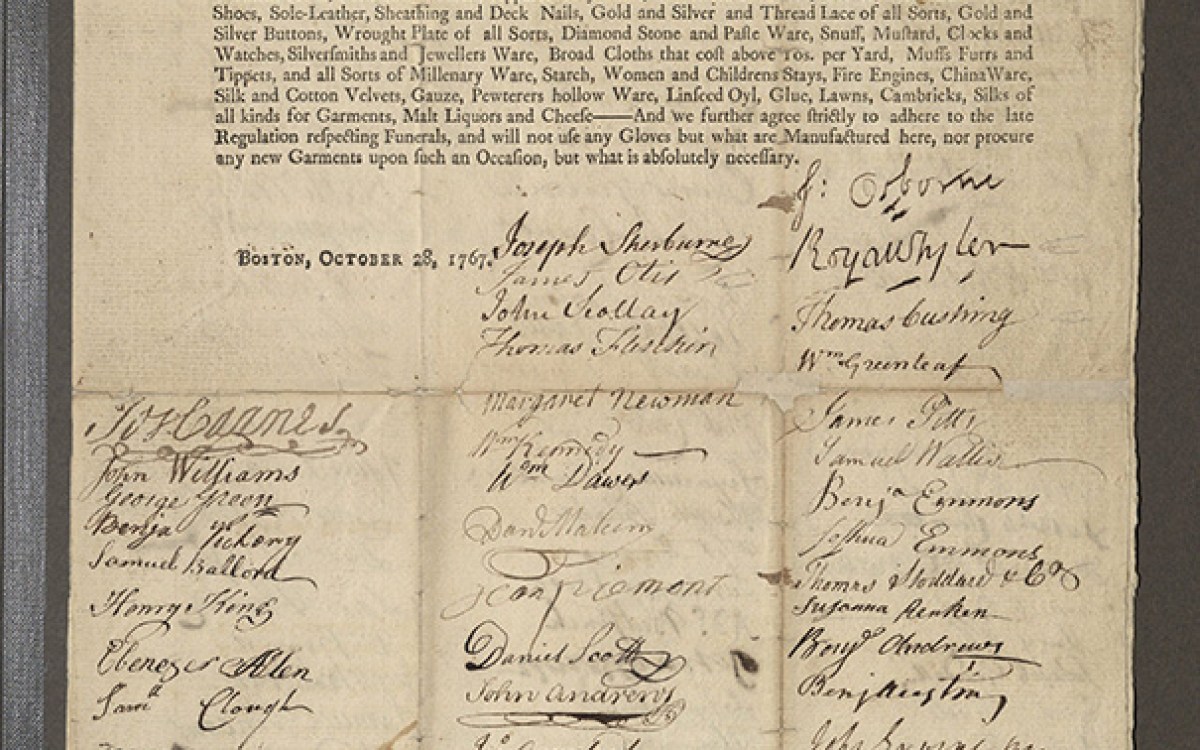 Shoes, Sole-Leather, Sheathing and Deck Nails, Gold and Silver and Thread Lace of all Sorts, Gold and
Silver Buttons, Wrought Plate of all Sorts, Diamond Stone and Paſte Ware, Snuff, Muſtard, Clocks and
Watches, Silverſmiths and Jewellers Ware, Broad Cloths that coſt above 10s. per Yard, Muffs Furrs and
Tippets, and all Sorts of Millenary Ware, Starch, Women and Childrens Stays, Fire Engines, China Ware,
Silk and Cotton Velvets, Gauze, Pewterers hollow Ware, Linſeed Oyl, Glue, Lawns, Cambricks, Silks of
all kinds for Garments, Malt Liquors and Cheeſe——And we further agree ſtrictly to adhere to the late
Regulation reſpecting Funerals, and will not uſe any Gloves but what are Manufactured here, nor procure
any new Garments upon ſuch an Occaſion, but what is abſolutely neceſſary.
J: Osborne
Boston, October 28, 1767.
Joseph Sherburne
James Otis
John Scollay
Thomas Fletcher
Royall Tyler
Thomas Cushing
Wm Greenleaf
Jos Carnes
John Williams
George Green
Benja Vickery
Samuel Ballord
Henry King
Ebenezer Allen
Samll Clough
Margaret Newman
Wm Kennedy
Wm Dawes
Danl Malcom
Jean Piemont
Daniel Scott
John Andrews
James Pitts
Samuel Wallis
Benja Emmons
Joshua Emmons
Thomas Stoddard & Co
Susanna Renken
Benj Andrews
Benj Austin
John